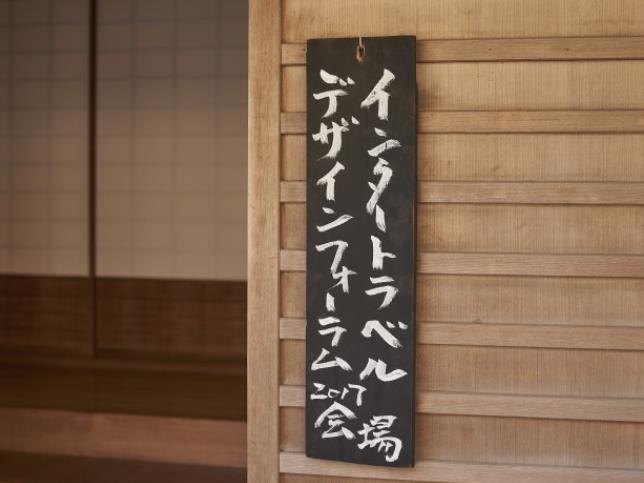 インタートラベル
デザインフォーラム
2017
会場